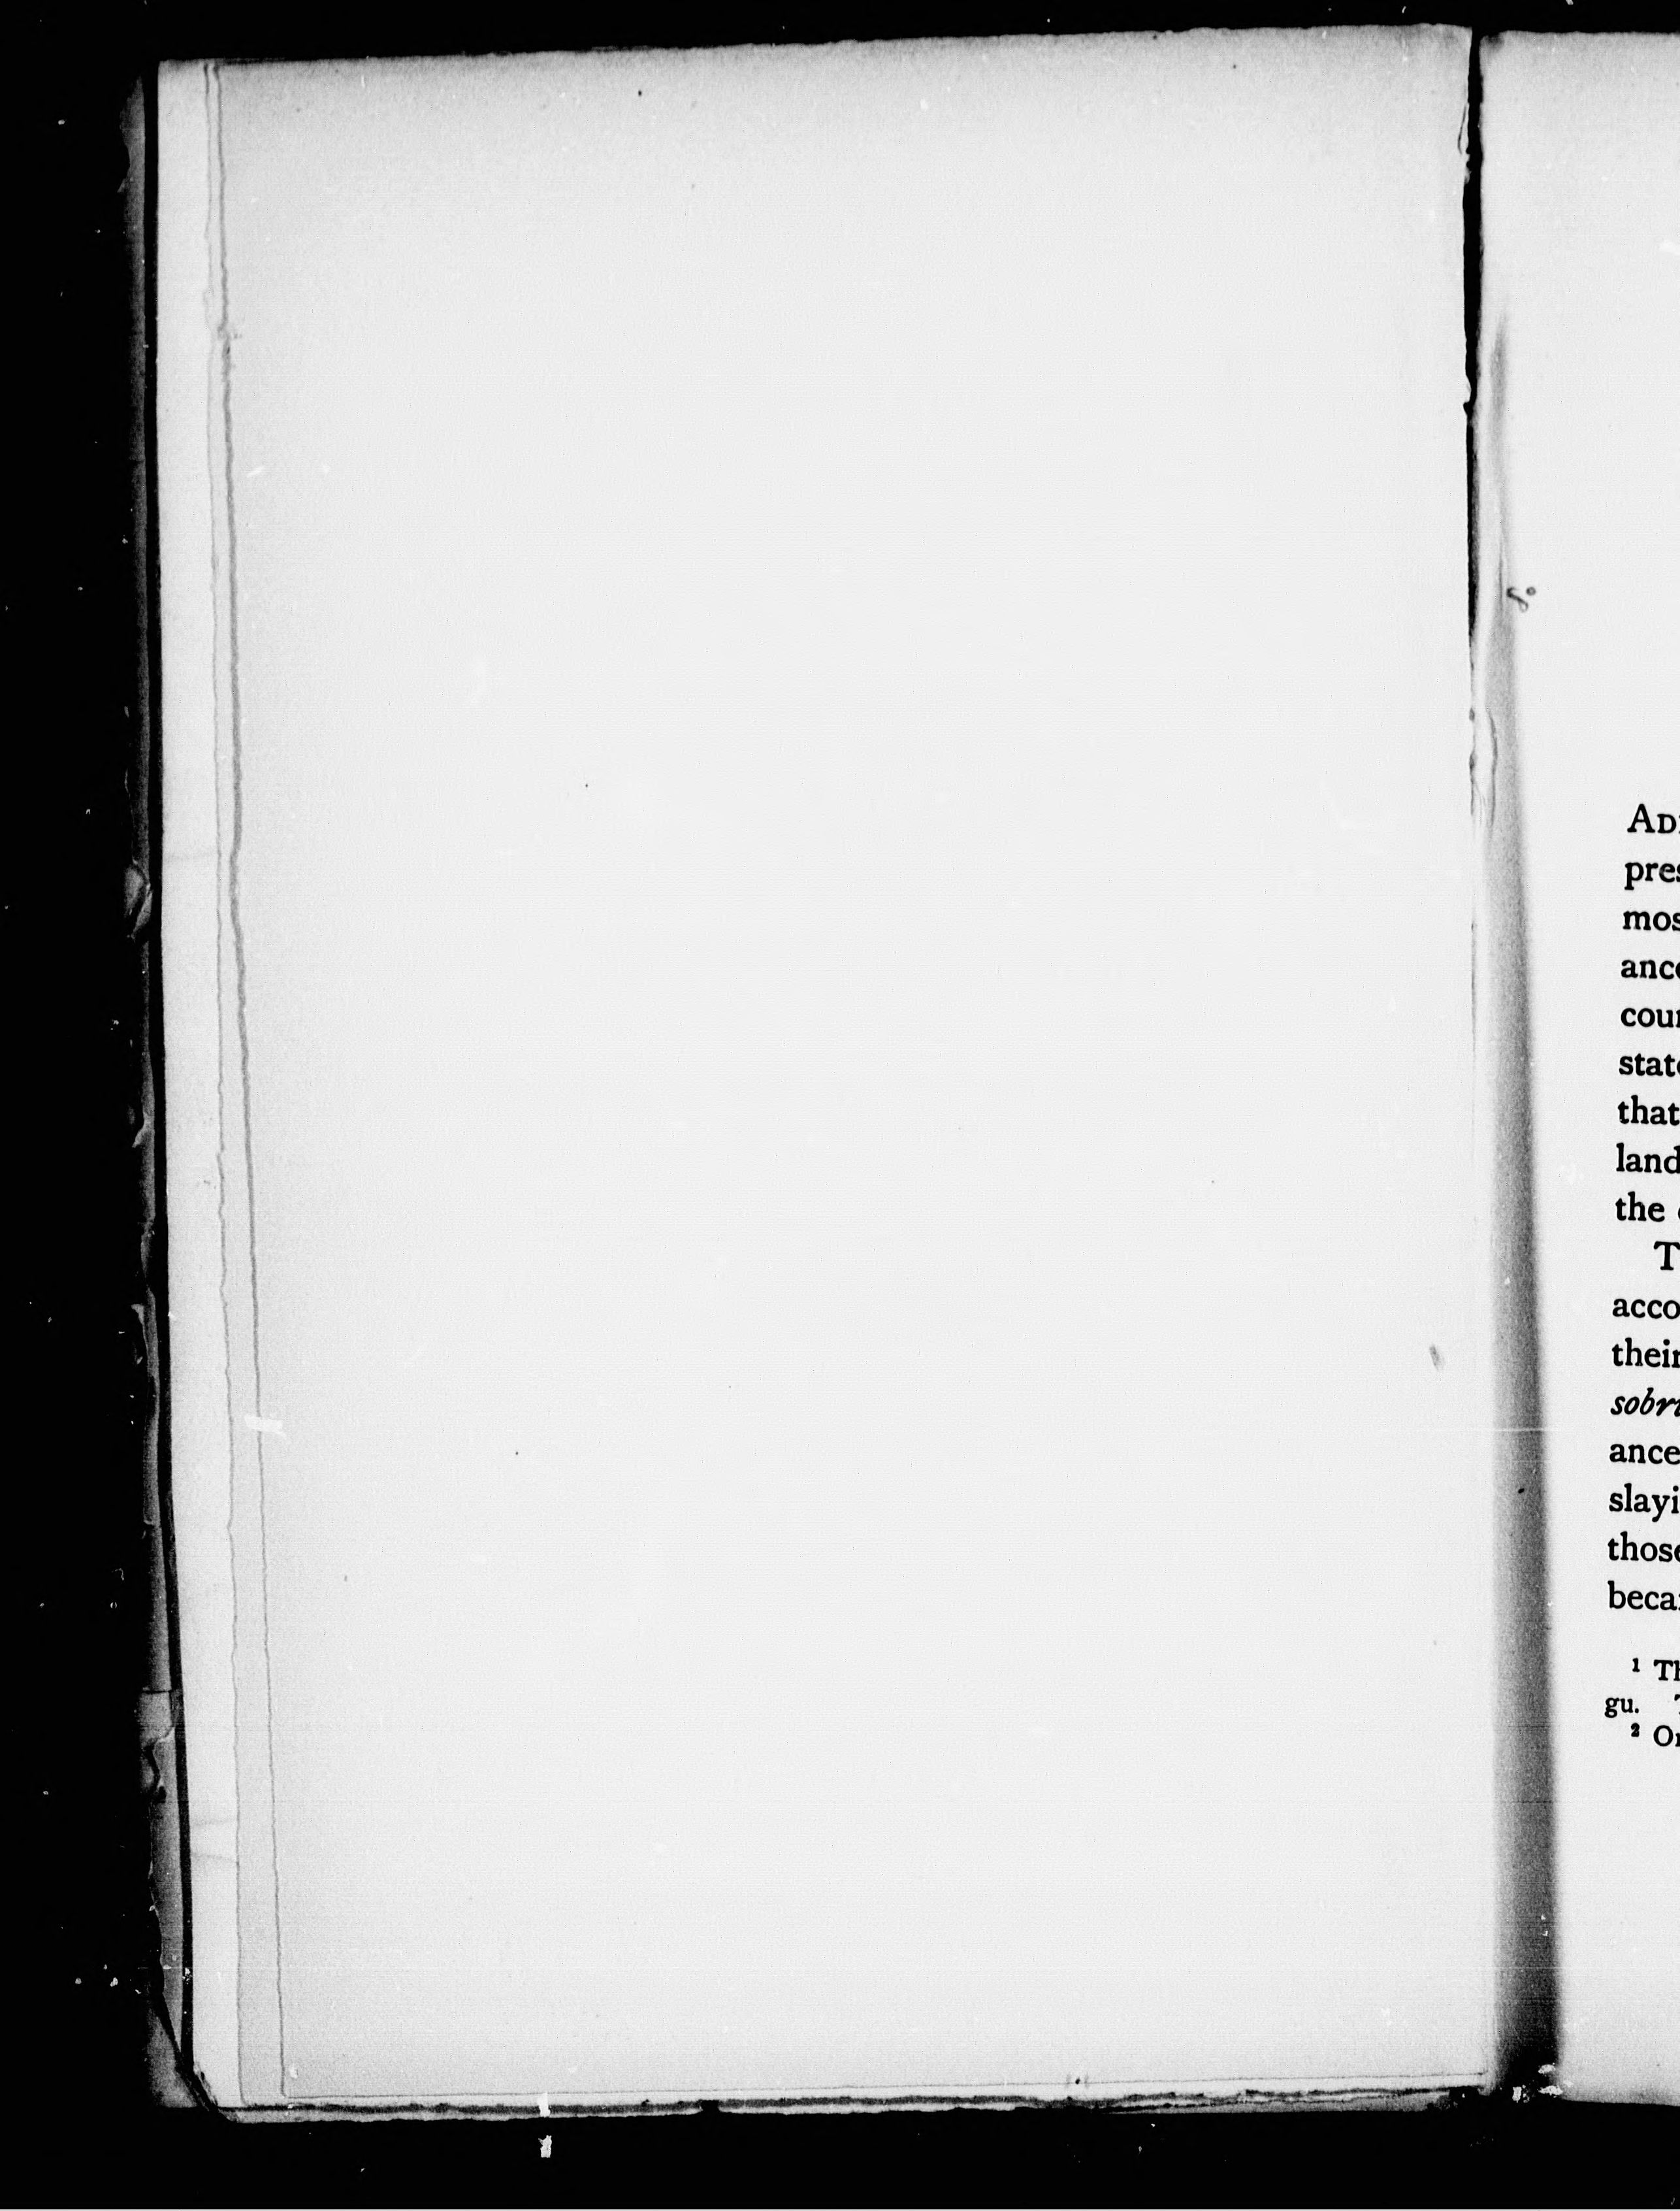 AD
pres
mos
anc
cou
stat
that
land
the
T
acco
their
sobri
ance
slayi
those
beca
1 Th
gu. T
2 Or